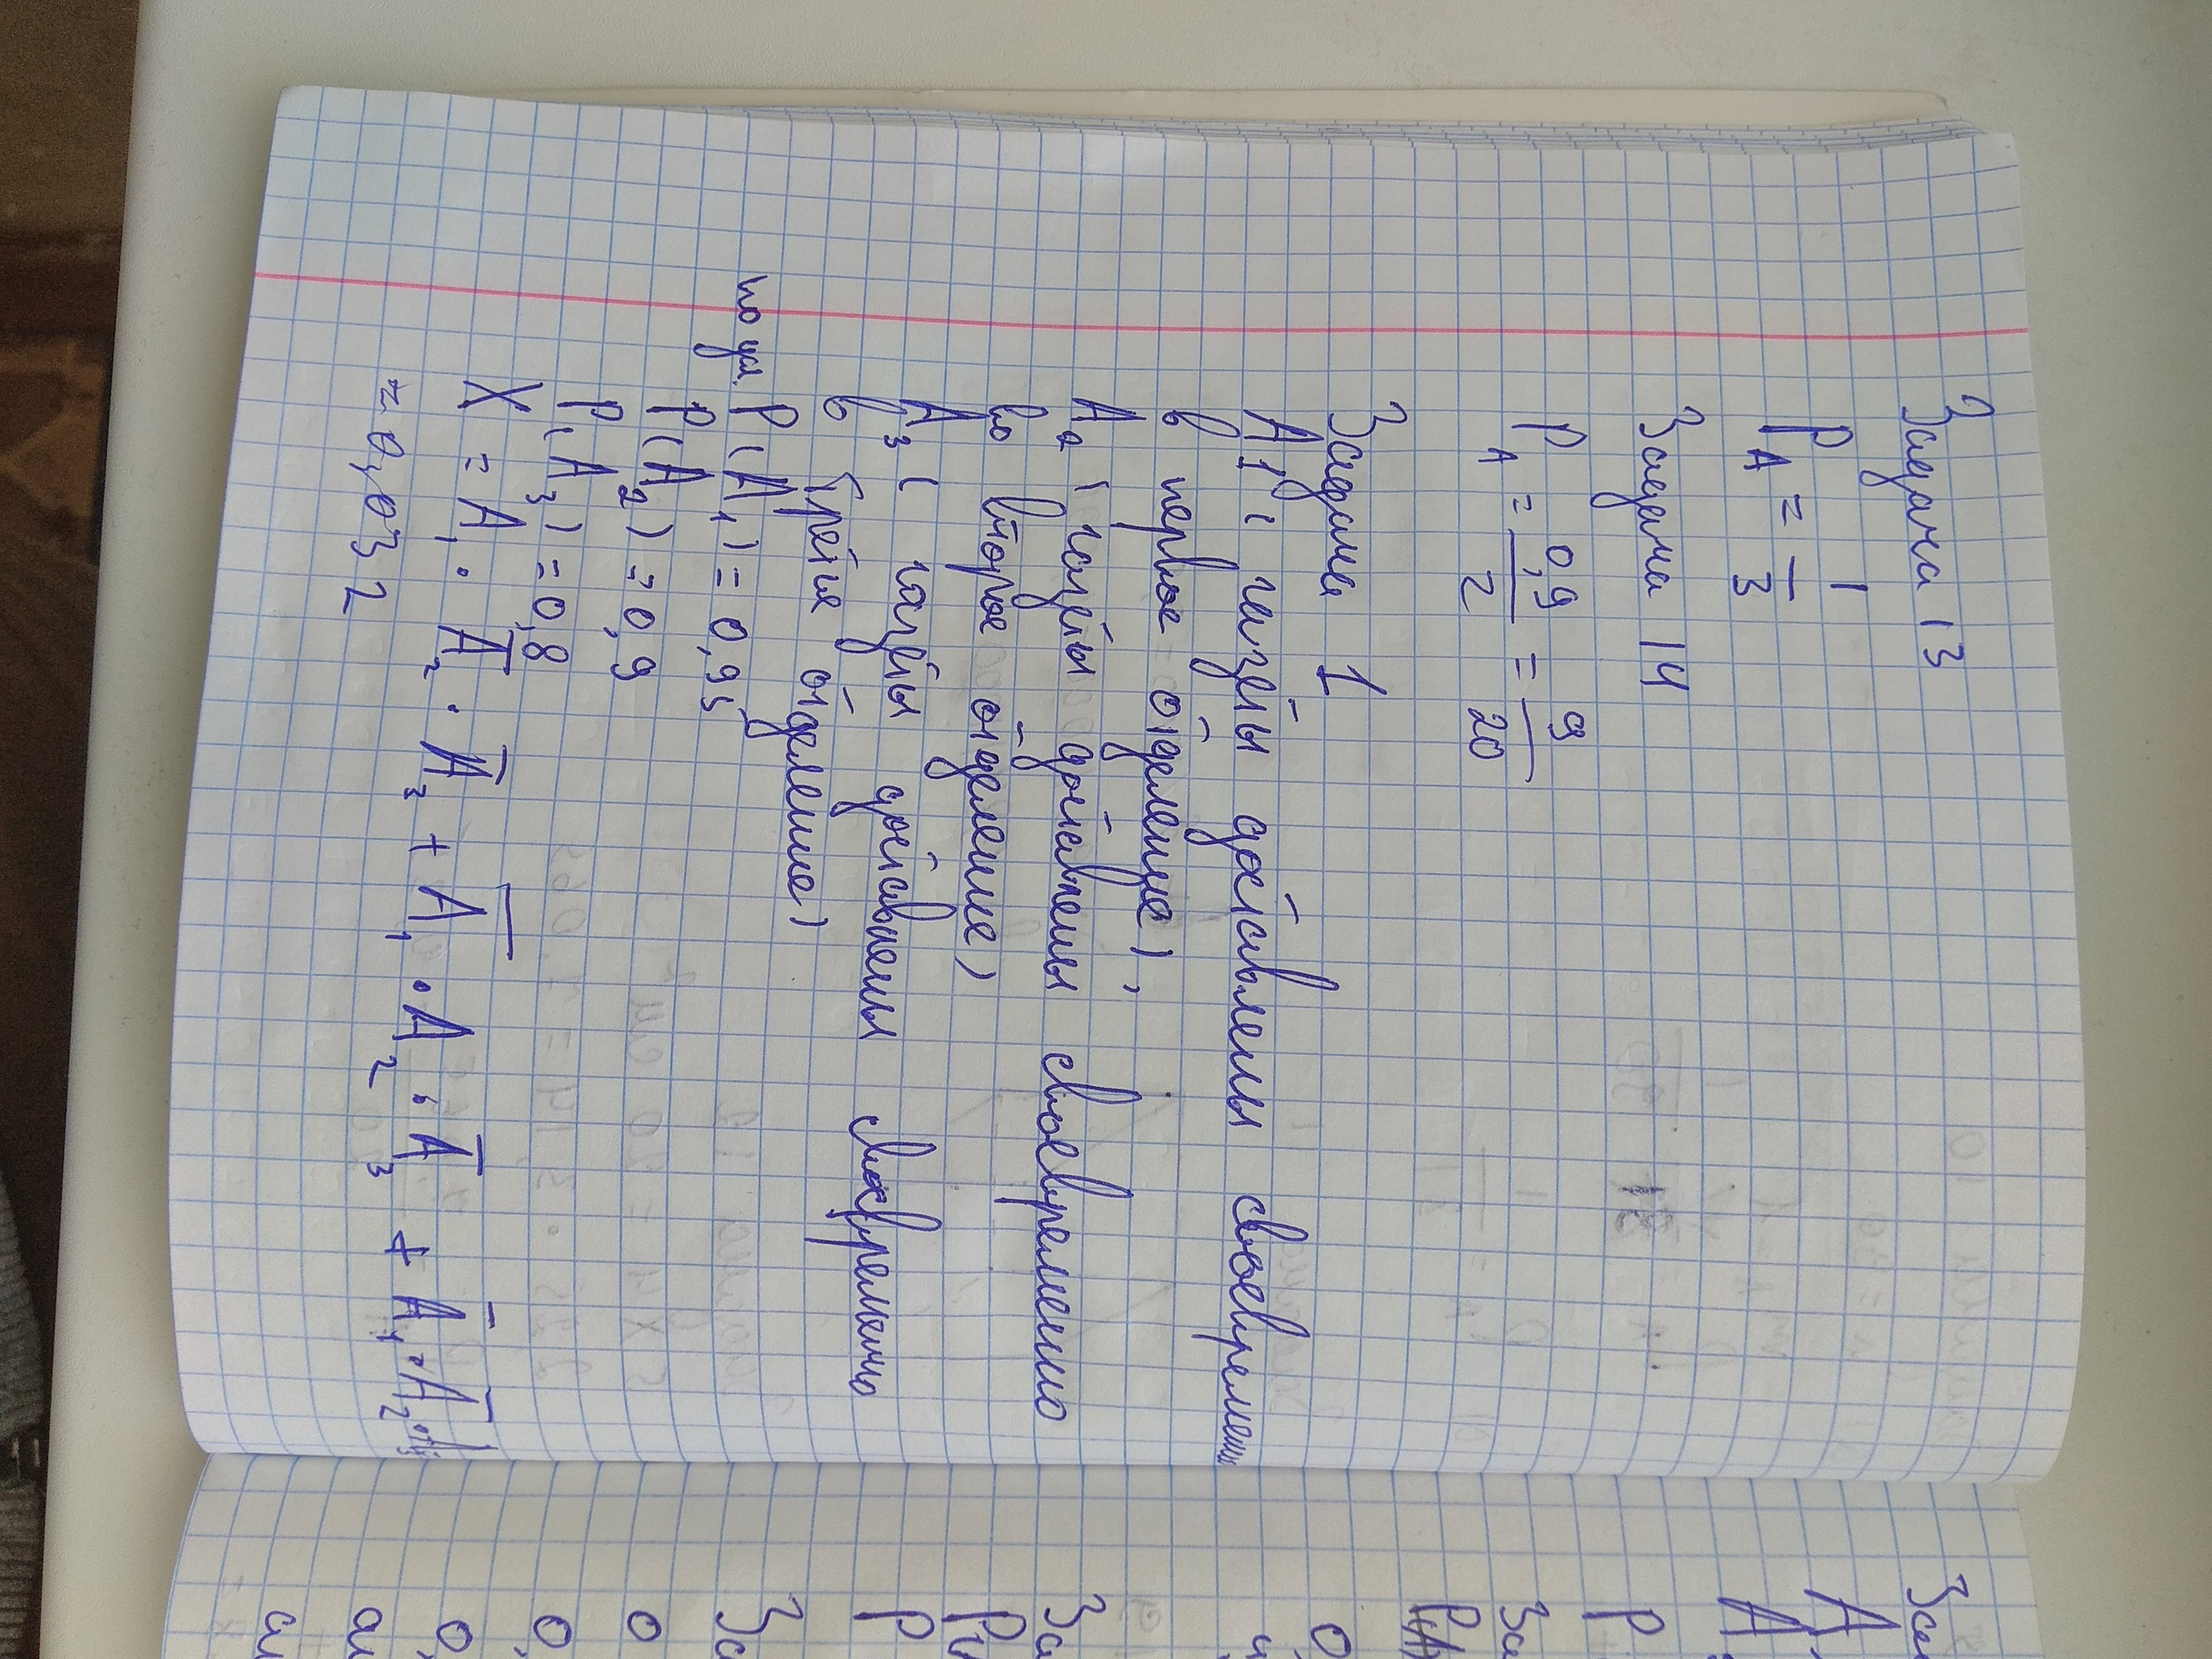 Задача 13
P_A = 1/3
Задача 14
P_A = 0,9/2 = 9/20
Задача 1
A1 ( газеты доставлены своевременно
в первое отделение),
A2 ( газеты доставлены своевременно
во второе отделение)
A3 ( газеты доставлены своевременно
в третье отделение)
по усл. P(A1) = 0,95
P(A2) = 0,9
P(A3) = 0,8
X = A1 · A̅2 · A̅3 + A̅1 · A2 · A̅3 + A̅1 · A̅2 · A3
= 0,032
За
A
A
P
За
P(A)
0,
За
P
За
0
0,
0,